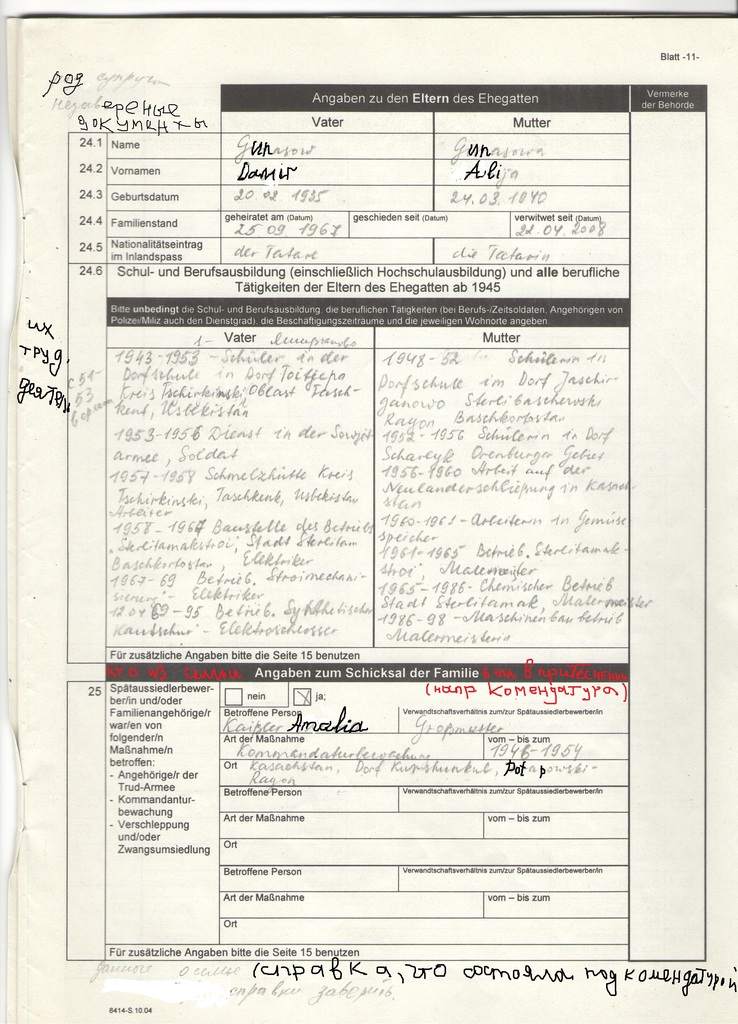 Blatt -11-
род супруги
незаверенные
документы
Angaben zu den Eltern des Ehegatten
Vermerke
der Behörde
Vater
Mutter
24.1 Name
Gunasow
Gunasowa
24.2 Vornamen
Damir
Alija
24.3 Geburtsdatum
20.02.1935
24.03.1940
24.4 Familienstand
geheiratet am (Datum)
25 09.1967
geschieden seit (Datum)
verwitwet seit (Datum)
22.04.2008
24.5 Nationalitätseintrag
im Inlandspass
der Tatare
die Tatarin
24.6 Schul- und Berufsausbildung (einschließlich Hochschulausbildung) und alle berufliche
Tätigkeiten der Eltern des Ehegatten ab 1945
Bitte unbedingt die Schul- und Berufsausbildung, die beruflichen Tätigkeiten (bei Berufs-/Zeitsoldaten, Angehörigen von
Polizei/Miliz auch den Dienstgrad), die Beschäftigungszeiträume und die jeweiligen Wohnorte angeben
их
труд.
деятел.
с 51-
53
Vater
1943-1953 - Schüler in der
Dorfschule in Dorf Toitjepa
Kreis Tschirkinski Oblast Tasch-
kent, Usbekistan
1953-1956 Dienst in der Sowjet
armee, Soldat
1957-1958 Schmelzhütte Kreis
Tschirkinski, Taschkent, Usbekistan
Arbeiter
1958-1967 Baustelle des Betriebs
"Sterlitamakstroi", Stadt Sterlitam
Baschkortostan, Elektriker
1967-69 Betrieb. Stroimechani-
- Elektriker
12.04 69-95 Betrieb. Synthetischer
Kautschuk - Elektroschlosser
Mutter
1948-52 Schülerin in
Dorfschule im Dorf Jaschir-
ganowo Sterlibaschewski
Rayon Baschkortostan
1952-1956 Schülerin in Dorf
Scharlyk Orenburger Gebiet
1956-1960 Arbeit auf der
Neulanderschließung in Kasach-
stan
1960-1961 - Arbeiterin in Gemüse
speicher
1961-1965 Betrieb. Sterlitamak-
stroi", Malermeister
1965-1986 - Chemischer Betrieb
Stadt Sterlitamak, Malermeister
1986-98 - Maschinenbaubetrieb
Malermeisterin
Für zusätzliche Angaben bitte die Seite 15 benutzen
кто из семьи Angaben zum Schicksal der Familie был в притеснении
(напр комендатура)
25 Spätaussiedlerbewer-
ber/in und/oder
Familienangehörige/r
war/en von
folgender/n
Maßnahme/n
betroffen:
- Angehörige/r der
Trud-Armee
- Kommandantur-
bewachung
- Verschleppung
und/oder
Zwangsumsiedlung
nein
ja;
Betroffene Person
Kaißler Amalia
Verwandtschaftsverhältnis zum/zur Spätaussiedlerbewerber/in
Großmutter
Art der Maßnahme
Kommandaturbewachung
vom – bis zum
1946-1954
Ort Kasachstan, Dorf Kumshunkul, Potapowski-
Rayon
Betroffene Person
Verwandtschaftsverhältnis zum/zur Spätaussiedlerbewerber/in
Art der Maßnahme
vom – bis zum
Ort
Betroffene Person
Verwandtschaftsverhältnis zum/zur Spätaussiedlerbewerber/in
Art der Maßnahme
vom – bis zum
Ort
Für zusätzliche Angaben bitte die Seite 15 benutzen
данные о семье (справка, что состояла под комендатурой
справки заверить.
8414-S.10.04